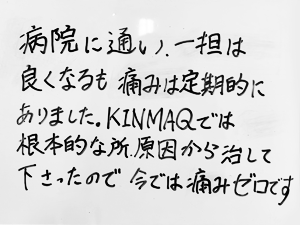 病院に通い、一担は
良くなるも 痛みは定期的に
ありました。KINMAQでは
根本的な所、原因から治して
下さったので 今では痛みゼロです